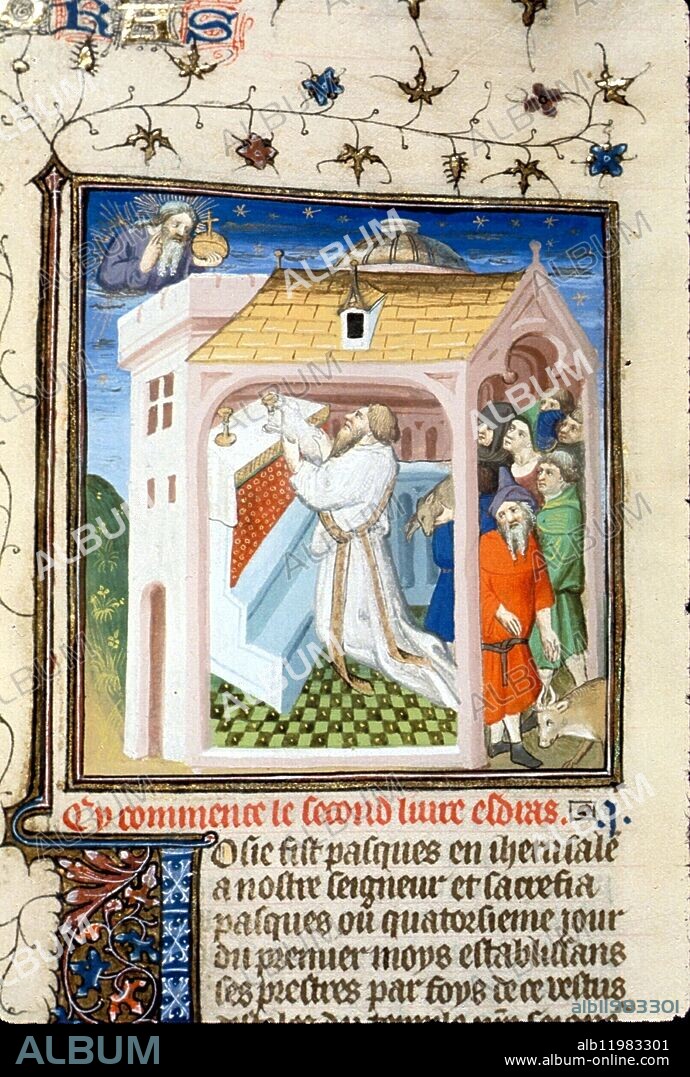 RAS
Cy commence le second livre esdras. .q.
Iosie fist pasques en iherusale
a nostre seigneur et sacrefia
pasques ou quatorsieme jour
du premier moys establissans
ses prestres par foys de ce vestus
ALBUM
alb11983301
ALBUM
alb11983301
album-online.com